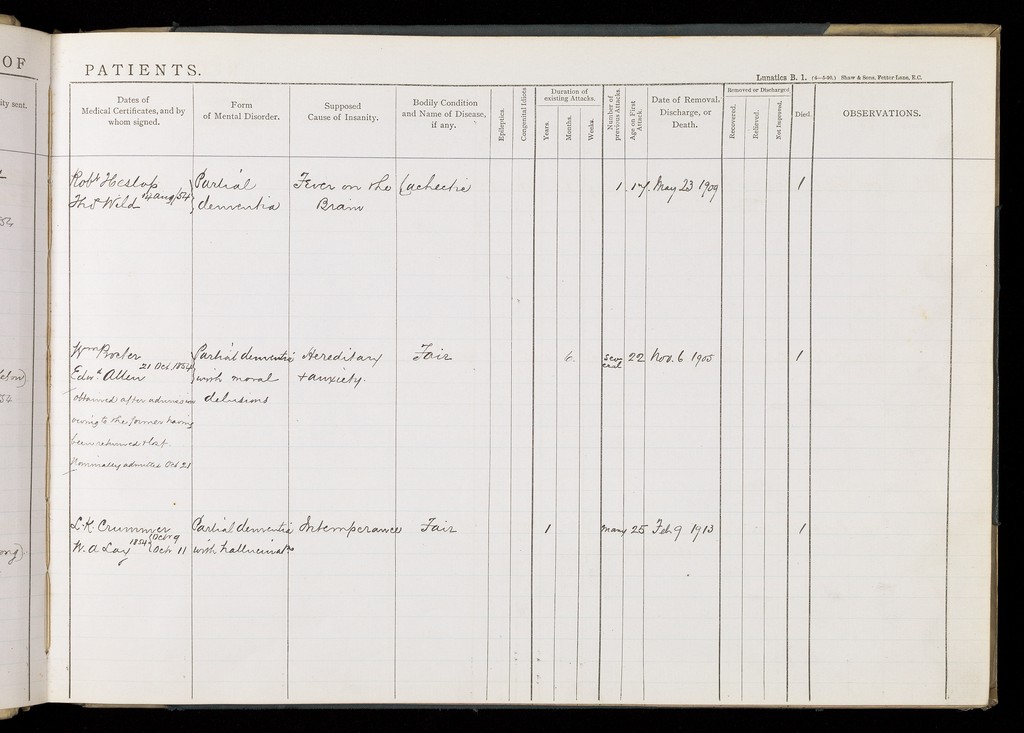 OF
PATIENTS.
Lunatics B. 1. (6—5-90.) Shaw & Sons, Fetter Lane, E.C.
ity sent.
Dates of
Medical Certificates, and by
whom signed.
Form
of Mental Disorder.
Supposed
Cause of Insanity.
Bodily Condition
and Name of Disease,
if any.
Epileptics.
Congenital Idiots
Duration of
existing Attacks.
Years.
Months.
Weeks.
Number of
previous Attacks.
Age on First
Attack.
Date of Removal,
Discharge, or
Death.
Removed or Discharged
Recovered.
Relieved.
Not Improved.
Died.
OBSERVATIONS.
Robt Heslop Partial Fever on the Cachectic 1 . 17. May 23 1909 1
Thos Wild 14 Aug/54 dementia Brain
54
Wm Procter Partial dementia Hereditary Fair 6 sev 22 Nov. 6 1905 1
eral
Edwd Allen 21 Oct 1854 with moral + anxiety.
obtained after admission delusions
owing to the former having
been returned & lost.
Nominally admitted Oct 21
elow)
54
L. K. Crummer Partial dementia Intemperance Fair 1 many 25 Feb. 9 1913 1
W. A. Lay 1854 Octr 9 Octr 11 with hallucinatns
ong)